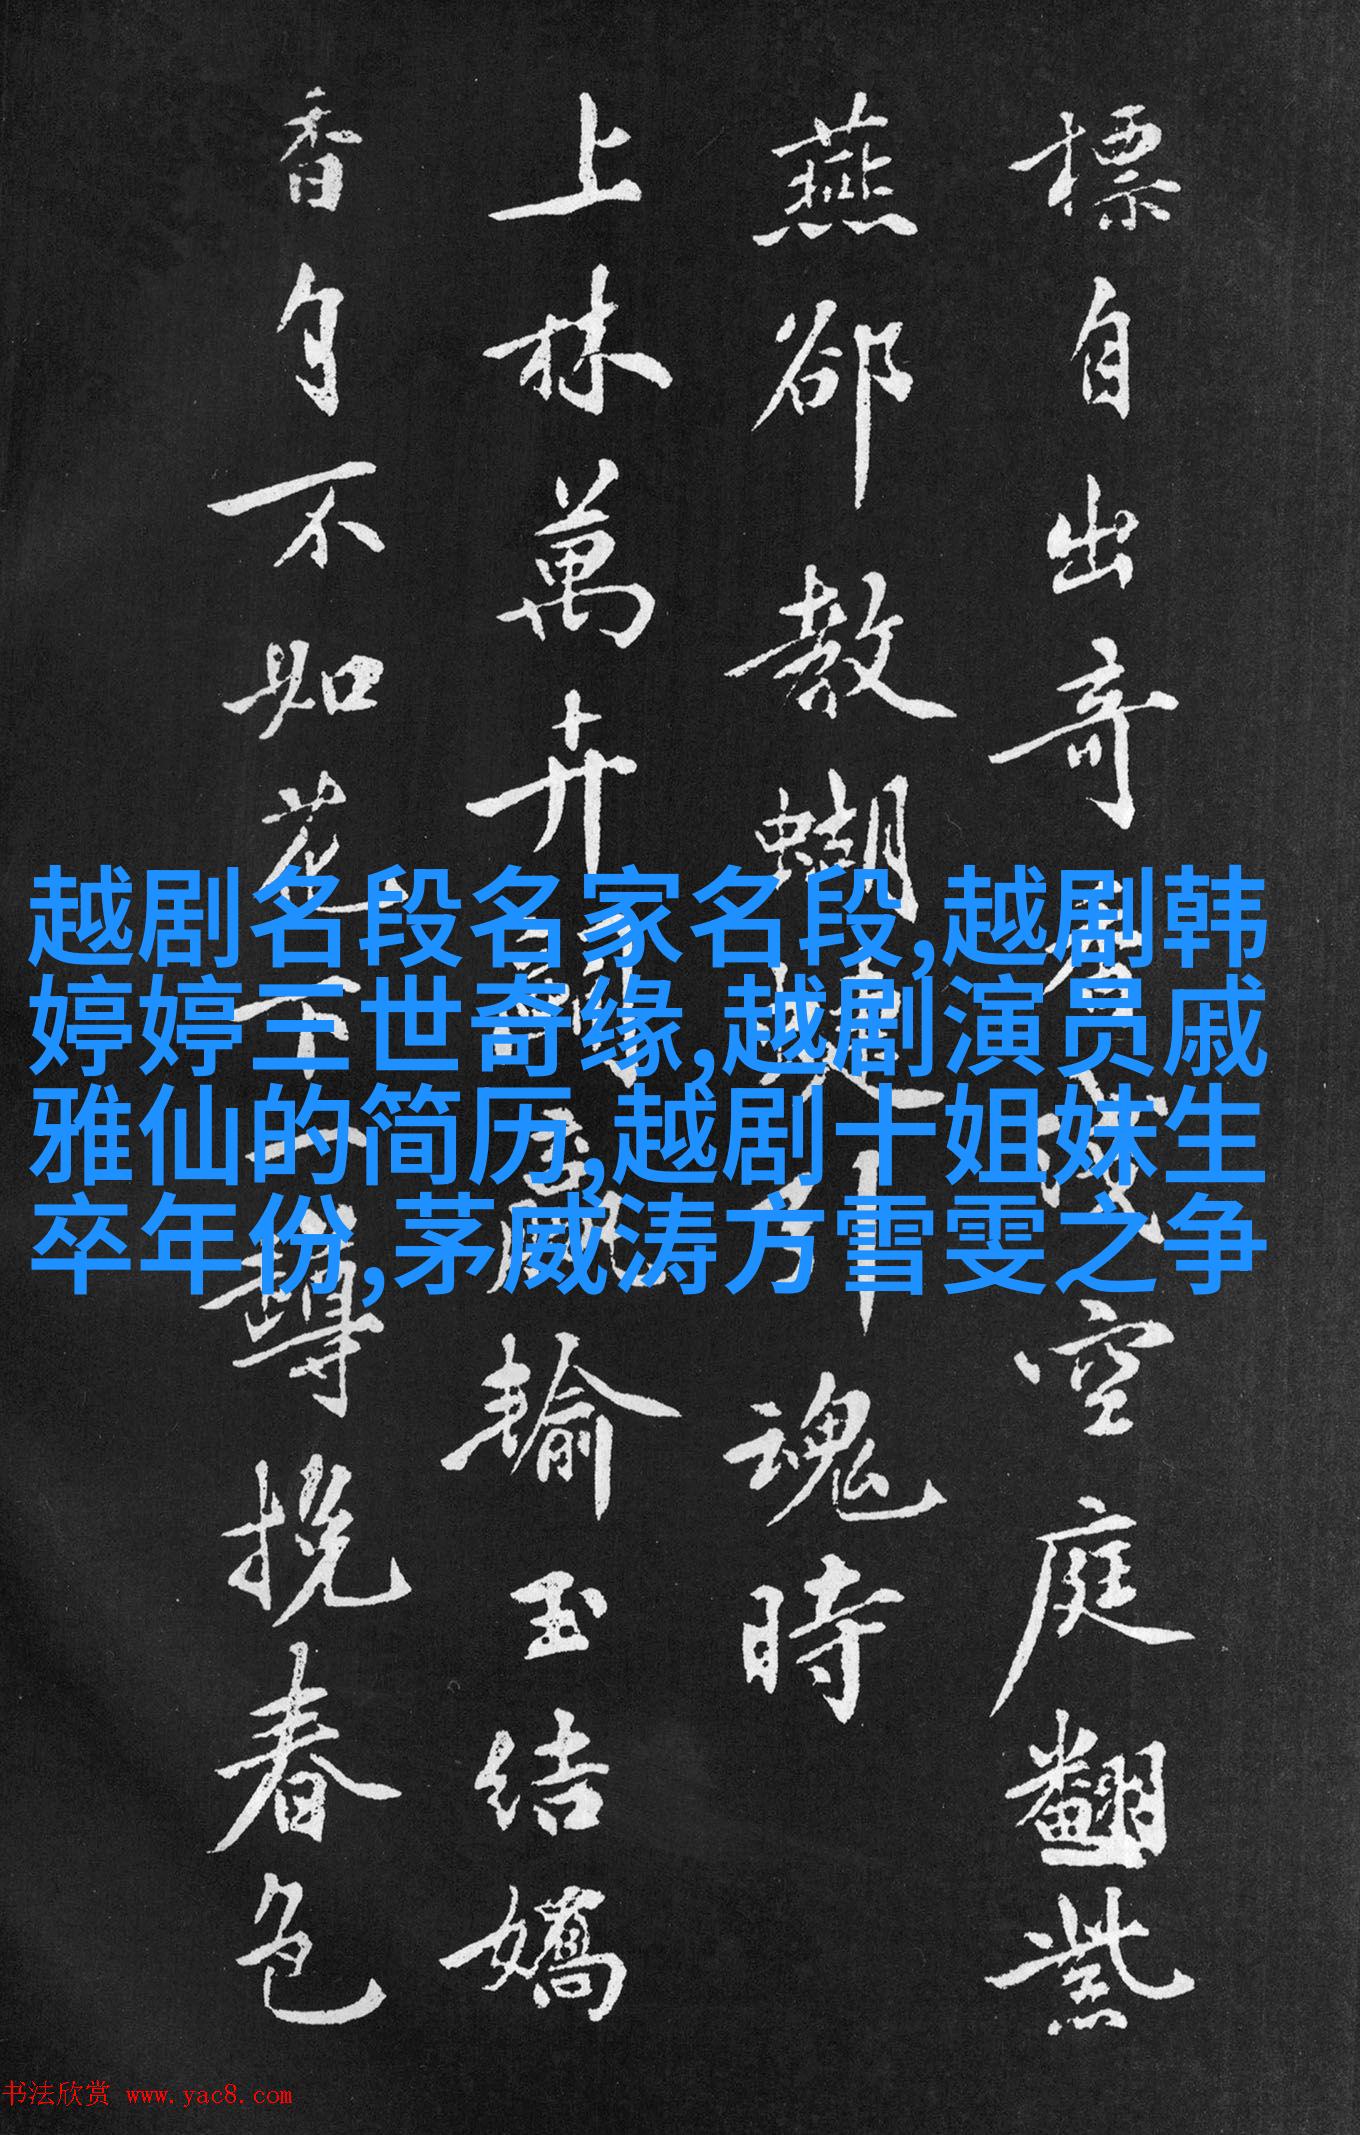 標自出奇空庭翻紫
燕郤教蝴蝶魂時
上林萬卉輸玉結嬌
香自不如花下一樽挽春色
越剧名段名家名段,越剧韩
婷婷三世奇缘,越剧演员戚
雅仙的简历,越剧十姐妹生
卒年份,茅威涛方雪雯之争
书法欣赏 www.yac8.com